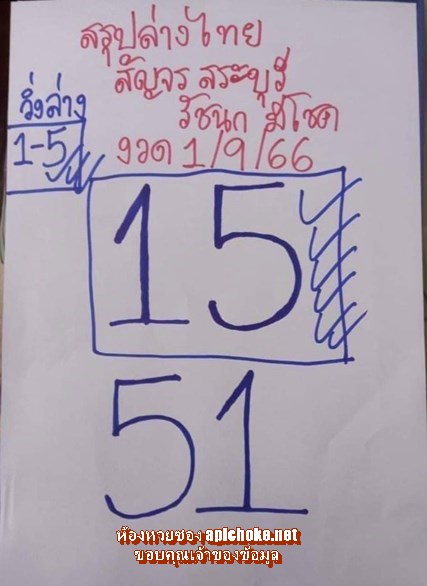 สรุปล่างไทย
สัญจร สระบุรี
รัชนก มีโชค
งวด 1/9/66
วิ่งล่าง
1-5
15
51
ห้องหวยซอง apichoke.net
ขอบคุณเจ้าของข้อมูล